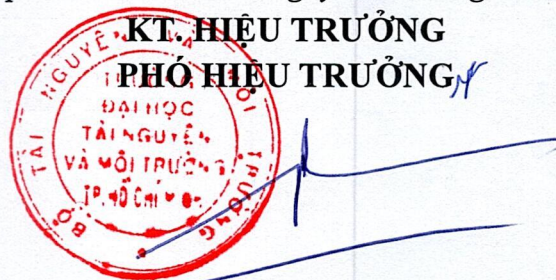 KT. HIỆU TRƯỞNG
PHÓ HIỆU TRƯỞNG
BỘ TÀI NGUYÊN VÀ MÔI TRƯỜNG
ĐẠI HỌC
TÀI NGUYÊN
VÀ MÔI TRƯỜNG
TP. HỒ CHÍ MINH